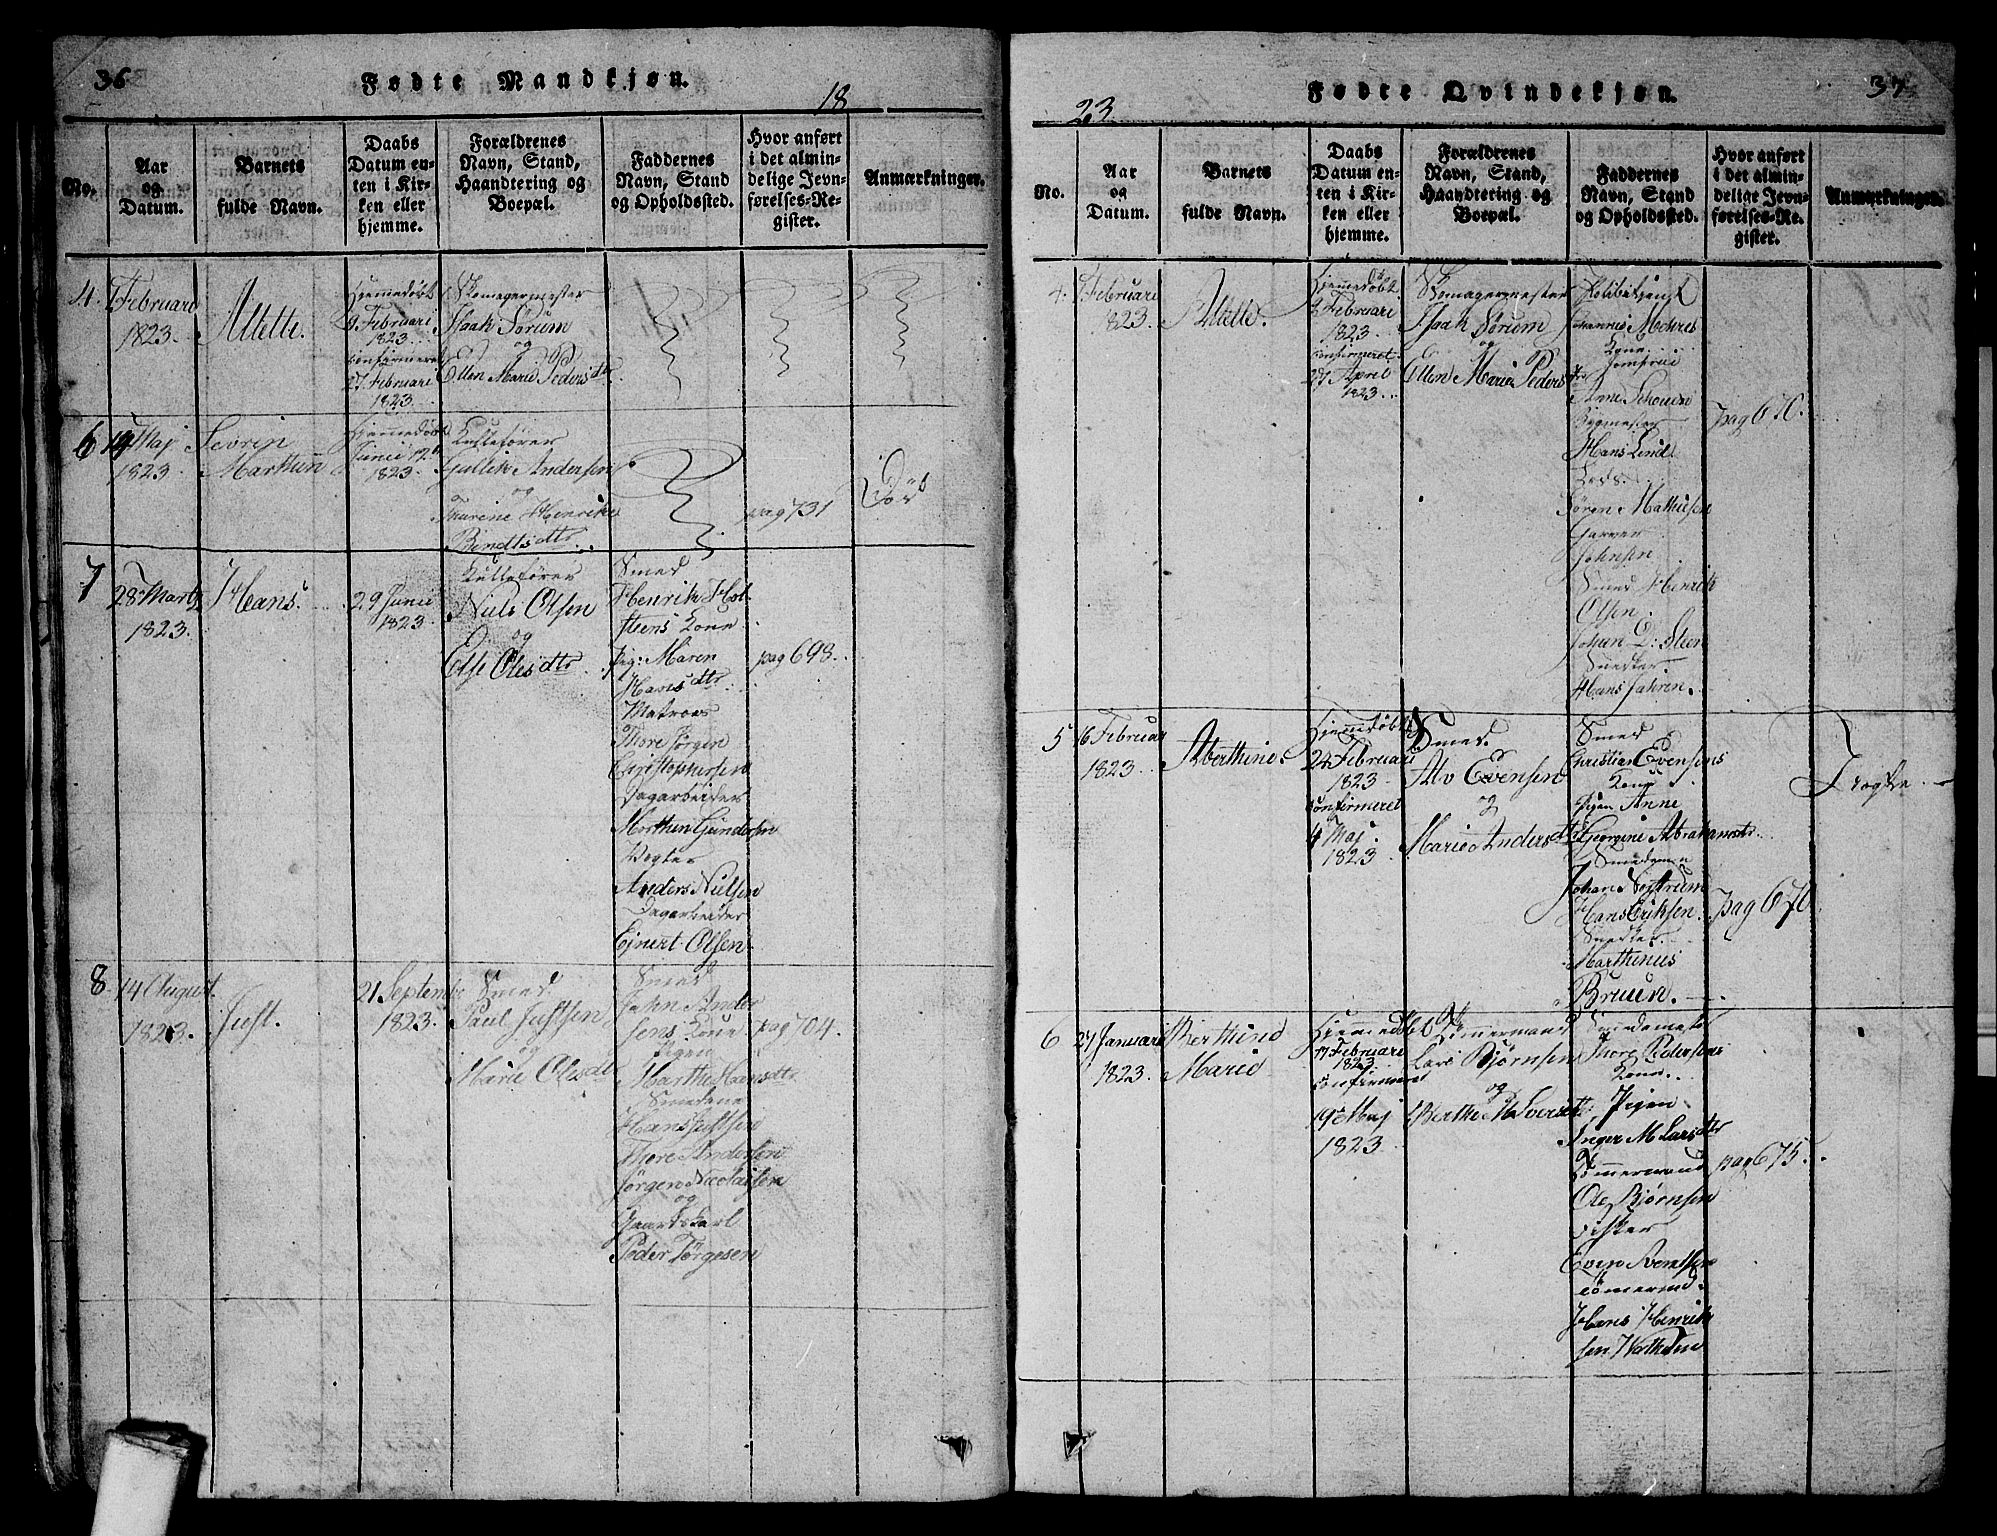 36
Fødte Mandkjøn.
18
No.
Aar
og
Datum.
Barnets
fulde Navn.
Daabs
Datum en-
ten i Kir-
ken eller
hjemme.
Forældrenes
Navn, Stand,
Haandtering og
Boepæl.
Faddernes
Navn, Stand
og Opholdssted.
Hvor anført
i det almin-
delige Jevn-
førelses-Re-
gister.
Anmærkninger.
4.
Februari
1823.
Hjemmedøbt
9 Februari
1823
confirmeret
27 Februari
1823
Skomagermester
Isaak Sørum
og
Ellen Marie Pedersdtr
6
Maj
1823
Sevrin
Marthin
Hjemmedøbt
Junii 12
1823
Kullefører
Gullik Andersen
og
Henrike
Bendtsdtr
pag 731
Død
7
28 Marts
1823.
Hans.
29 Junii
1823
Kullefører
Niels Olsen
og
Else Olesdtr
Smed
Henrik Hol-
steens Kone
Pig: Maren
Hansdtr
Matros
Thore Jørgen
Christophersen
Dagarbeider
Morthen Gundersen
Vogter
Anders Nielsen
Dagarbeider
Ejnert Olsen
pag 698.
8
14 August
1823.
Just.
21 Septembr
1823.
Smed
Paul Justsen
og
Marie Olesdtr
Smed
John Ander
sens Kone
Pigen
Marthe Hansdtr
Smedene
Hans Justsen
Thore Andersen
Jørgen Nicolaisen
og
Gaardskarl
Peder Tørgesen
pag 704.
37
Fødte Qvindekjøn.
23
No.
Aar
og
Datum.
Barnets
fulde Navn.
Daabs
Datum en-
ten i Kir-
ken eller
hjemme.
Forældrenes
Navn, Stand,
Haandtering og
Boepæl.
Faddernes
Navn, Stand
og Opholdssted.
Hvor anført
i det almin-
delige Jevn-
førelses-Re-
gister.
Anmærkninger.
4.
Februari
1823.
Hjemmedøbt
9 Februari
1823
confirmeret
27 April
1823
Skomagermester
Isaak Sørum
og
Ellen Marie Pedersdtr
Johannes
Kone
Jomfrue
Anne Schouen
Bygmester
Hans Lind
Søren Mathisen
Garver
Johnsen
Smed Henrik
Olsen
Johan D: Steen
Snedker
Hans Jahren.
pag 670.
5
16 Februar
1823
Abethine.
Hjemmedøbt
24 Februari
1823
confirmeret
4 Maj
1823
Smed
Alv Evensen
og
Marie Andersdtr
Smed
Christian Evensens
Kone
Pigen Anne
Georgine Abrahamsdtr
Smedene
Johan
Hans Eriksen
Snedker
Marthinus
Bruun.
pag 670
6
27 Januari
1823.
Berthine
Marie
Hjemmedøbt
17 Februari
1823
confirmeret
19de Maj
1823
Tømmermand
Lars Bjørnsen
og
Berthe M Sversdtr
Smedemester
Thore Pedersens
Kone
Pigen
Inger M Larsdtr
Tømmermand
Ole Bjørnsen
Fisker
Even
Tømermd
Hans Henrik
sen
pag 675.